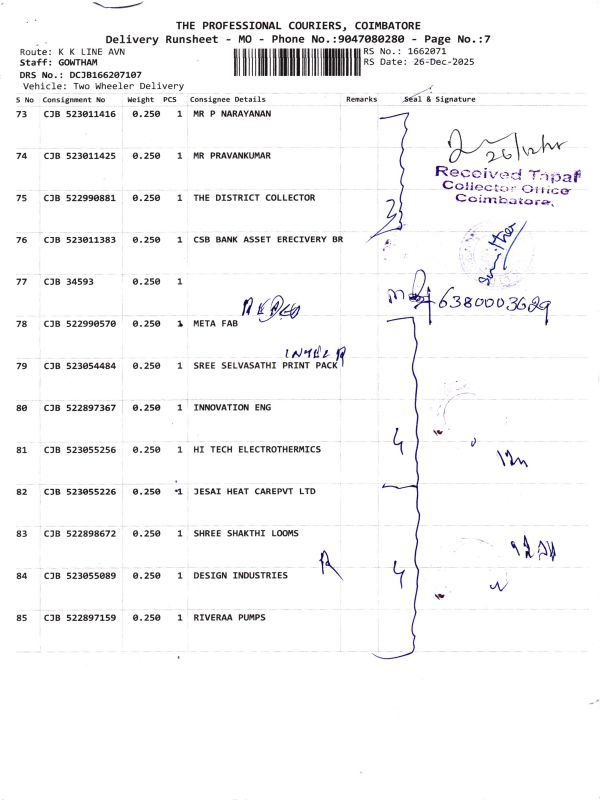 THE PROFESSIONAL COURIERS, COIMBATORE
Delivery Runsheet - MO - Phone No.:9047080280 - Page No.:7
Route: K K LINE AVN
RS No.: 1662071
Staff: GOWTHAM
RS Date: 26-Dec-2025
DRS No.: DCJB166207107
Vehicle: Two Wheeler Delivery
S No Consignment No Weight PCS Consignee Details Remarks Seal & Signature
73 CJB 523011416 0.250 1 MR P NARAYANAN
74 CJB 523011425 0.250 1 MR PRAVANKUMAR
Received Tapal
Collector Office
Coimbatore.
75 CJB 522990881 0.250 1 THE DISTRICT COLLECTOR
3
76 CJB 523011383 0.250 1 CSB BANK ASSET ERECIVERY BR
77 CJB 34593 0.250 1
6380003629
78 CJB 522990570 0.250 1 META FAB
79 CJB 523054484 0.250 1 SREE SELVASATHI PRINT PACK
80 CJB 522897367 0.250 1 INNOVATION ENG
4
81 CJB 523055256 0.250 1 HI TECH ELECTROTHERMICS
82 CJB 523055226 0.250 1 JESAI HEAT CAREPVT LTD
83 CJB 522898672 0.250 1 SHREE SHAKTHI LOOMS
4
84 CJB 523055089 0.250 1 DESIGN INDUSTRIES
85 CJB 522897159 0.250 1 RIVERAA PUMPS